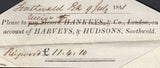 Southwold 9 July 1841
Please to pay Messrs HANKEYS, & Co., London, on
account of HARVEYS, & HUDSONS, Southwold.
Received £11.4.10